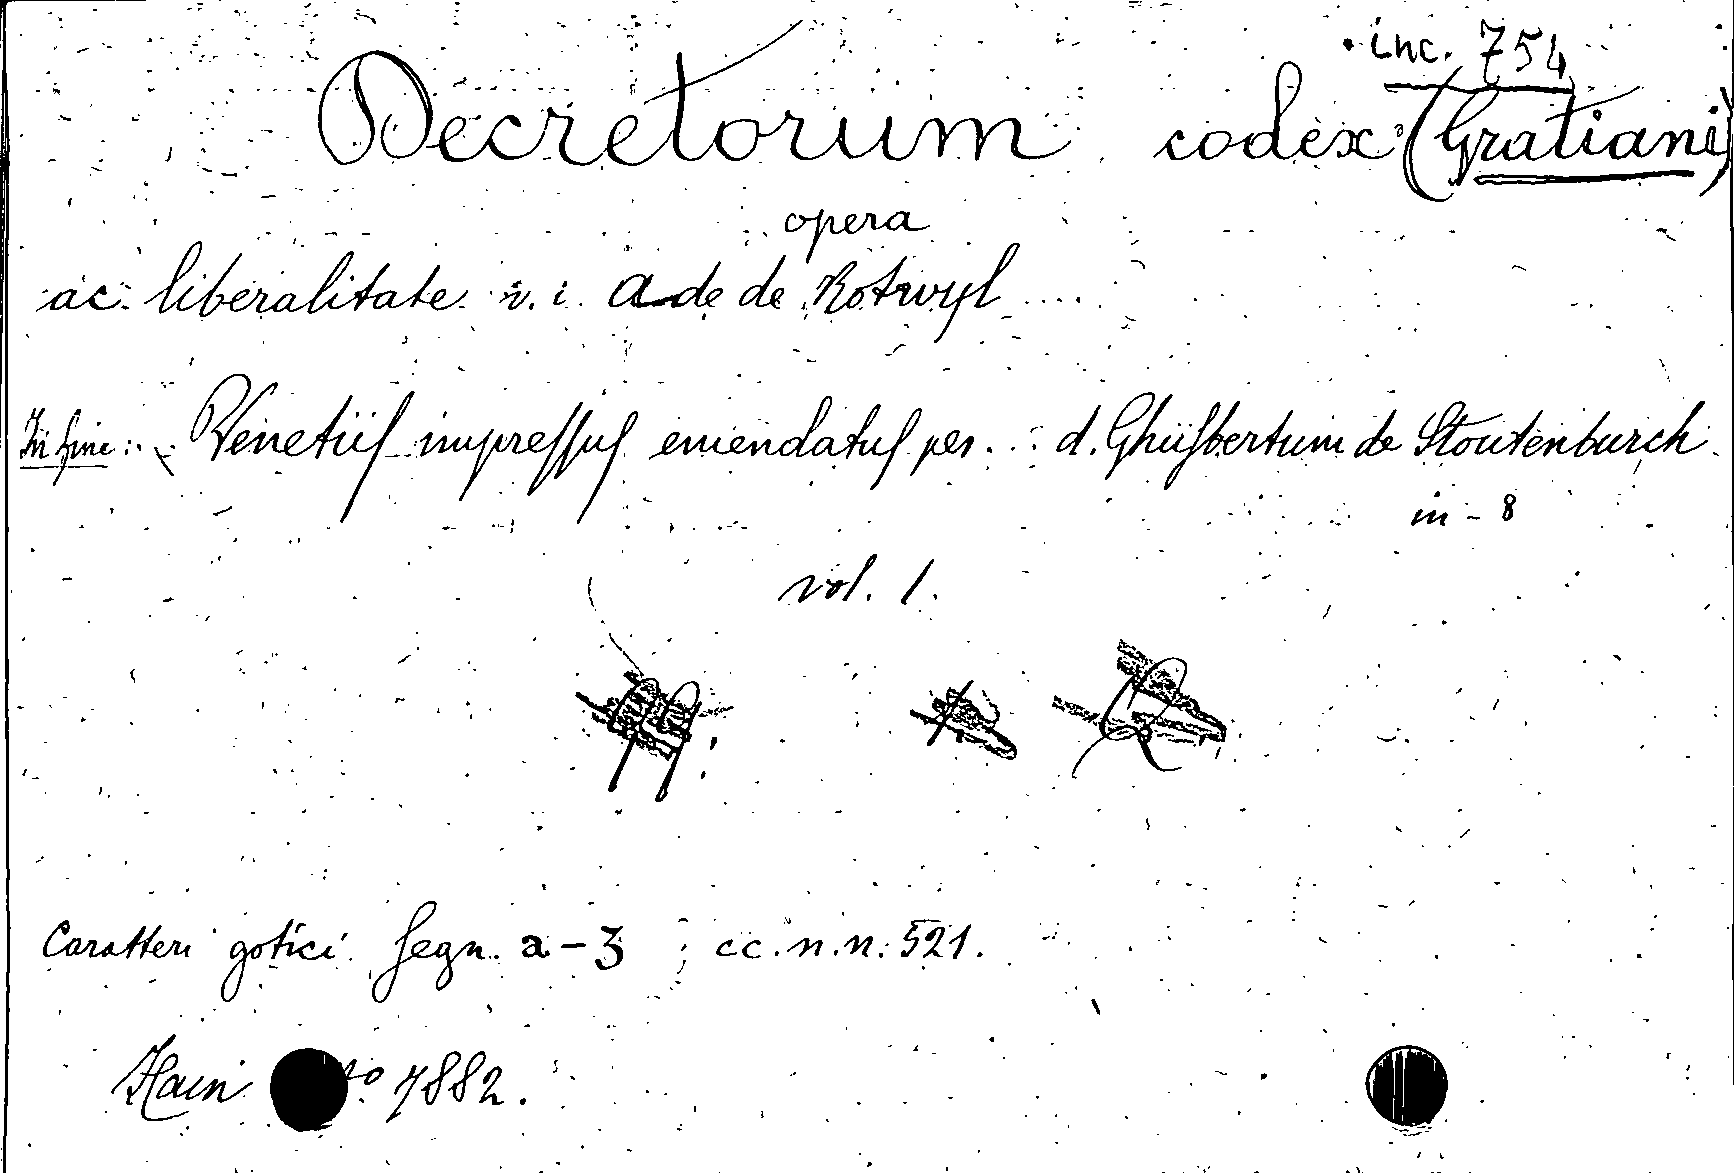 inc. 754
Decretorum codex (Gratiani)
opera
ac liberalitate v. i. Ade de Rotwyl ....
In fine: Venetiis impressus emendatus per ... d. Ghiisbertum de Stoutenburch
in-8
vol. 1.
Caratteri gotici segn. a-3; cc. n. n. 521.
Hain 7882.